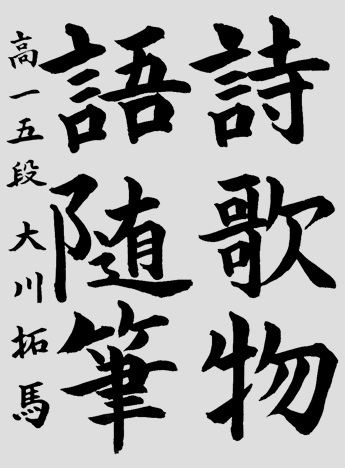 詩歌物
語随筆
高一五段 大川拓馬